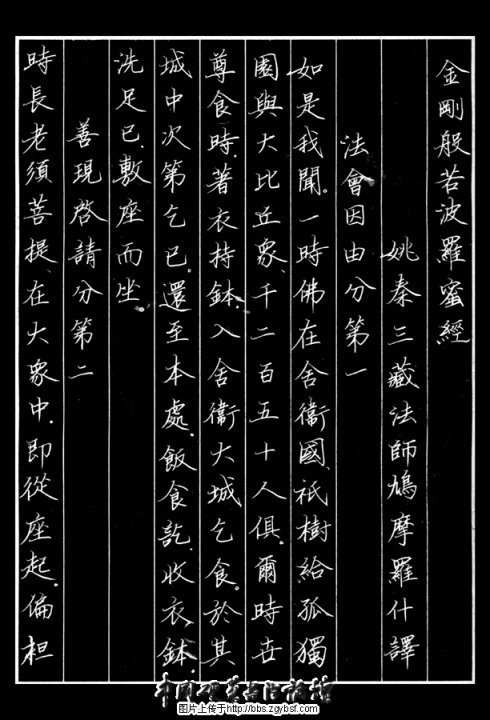 金剛般若波羅蜜經
姚秦三藏法師鳩摩羅什譯
法會因由分第一
如是我聞。一時佛在舍衞國、祇樹給孤獨
園與大比丘衆、千二百五十人俱。爾時世
尊食時、著衣持鉢、入舍衞大城乞食。於其
城中次第乞已。還至本處、飯食訖、收衣鉢、
洗足已、敷座而坐。
善現啓請分第二
時長老須菩提、在大衆中、即從座起、偏袒
图片上传于http://bbs.zgybsf.com